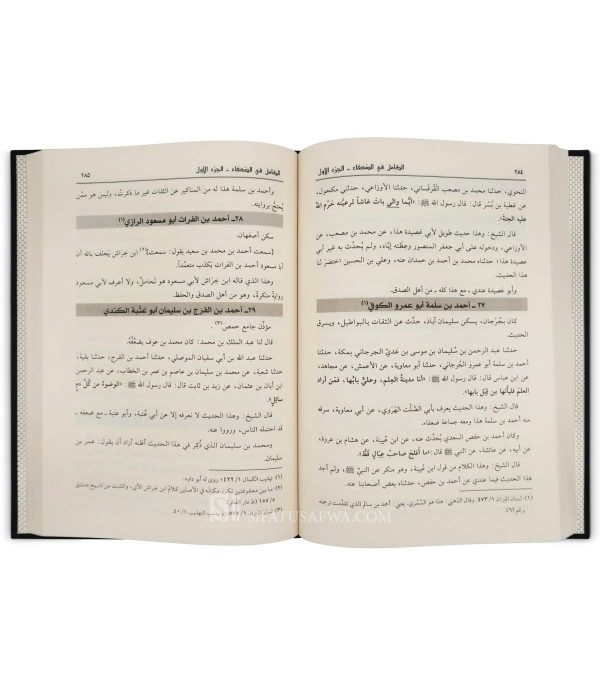 ٢٨٤
الكامل في الضعفاء - الجزء الأول
النحوي، حدثنا محمد بن مصعب القرقساني، حدثنا الأوزاعي، حدثني مكحول،
عن عطية بن بُسْر قال: قال رسول الله ﷺ: «أيُّما والٍ باتَ غاشاً لرعيَّته حَرَّم الله
عليه الجنة».
قال الشيخ: وهذا حديث طويل لأبي عصيدة هذا، عن محمد بن مصعب، عن
الأوزاعي، ودخوله على أبي جعفر المنصور وعِظَته إيَّاه، ولم يُحدِّث به غير أبي
عصيدة هذا؛ حدثناه محمد بن أحمد بن حمدان عنه، وعلي بن الحسين اختصر لنا
هذا الحديث.
وأبو عصيدة عندي - مع هذا كله - من أهل الصدق.
٢٧ - أحمد بن سلمة أبو عمرو الكوفي (١)
كان بجُرْجان، يسكن سليمان آباذ، حدَّث عن الثقات بالبواطيل، ويسرق
الحديث.
حدثنا عبد الرحمن بن سُليمان بن موسى بن عَدي الجرجاني بمكة، حدثنا
أحمد بن سلمة أبو عمرو الجُرجاني، حدثنا أبو معاوية، عن الأعمش، عن مجاهد،
عن ابن عباس قال: قال رسول الله ﷺ: «أنا مدينةُ العِلم، وعليٌّ بابُها، فمن أراد
العلم فليأتها من قِبَل بابها».
قال الشيخ: وهذا الحديث يعرف بأبي الصَّلْت الهَرَوي، عن أبي معاوية، سرقه
منه أحمد بن سلمة هذا ومعه جماعة ضعفاء.
وكان أحمد بن حفص السعدي يُحدِّث عنه، عن ابن عُيينة، عن هشام بن عروة،
عن أبيه، عن عائشة، عن النبي ﷺ قال: «ما أفلح صاحبُ عِيالٍ قطُّ».
قال الشيخ: وهذا الكلام من قول ابن عُيينة، وهو منكر عن النبي ﷺ، ولم أجد
هذا الحديث فيما عندي عن أحمد بن حفص، حدثنا عنه بعض أصحابنا عنه.
(١) لسان الميزان ١/ ٤٧٣ وقال الذهبي: هذا هو السَّمُري، يعني: أحمد بن سالم الذي تقدَّمت ترجمته
برقم (٦).
الكامل في الضعفاء - الجزء الأول
٢٨٥
وأحمد بن سلمة هذا له من المناكير عن الثقات غير ما ذكرتُ، وليس هو ممَّن
يُحتجُّ بروايته.
٢٨ - أحمد بن الفرات أبو مسعود الرازي (١)
سكن أصفهان.
[سمعت أحمد بن محمد بن سعيد يقول: سمعت](٢) ابن خِرَاش يَحلِف بالله أن
أبا مسعود أحمد بن الفرات يكذب متعمِّداً.
وهذا الذي قاله ابن خراش لأبي مسعود هو تحامل، ولا أعرف لأبي مسعود
روايةً منكرة، وهو من أهل الصدق والحفظ.
٢٩ - أحمد بن الفرج بن سليمان أبو عُتْبة الكندي
مؤذِّن جامع حمص (٣).
قال لنا عبد الملك بن محمد: كان محمد بن عوف يضعِّفُه.
حدثنا عبد الله بن أبي سفيان الموصلي، حدثنا أحمد بن الفرج، حدثنا بقية،
حدثنا شعبة، عن محمد بن سليمان بن عاصم بن عمر بن الخطاب، عن عبد الرحمن
ابن أبان بن عثمان، عن زيد بن ثابت قال: قال رسول الله ﷺ: «الوضوءُ من كُلِّ دمٍ
سائلٍ».
قال الشيخ: وهذا الحديث لا نعرفه إلا عن أبي عُتبة، وأبو عتبة - مع ضعفه -
قد احتمله الناس، ورووا عنه.
ومحمد بن سليمان الذي ذُكِر في هذا الحديث أظنه أراد أن يقول: عمر بن
سليمان.
(١) تهذيب الكمال ١/ ٤٢٢؛ روى له أبو داود.
(٢) ما بين معقوفتين مكانه في الأصلين كلام ابن خراش الآتي، والمثبت من تاريخ دمشق
٥/ ١٥٥ (ط دار الفكر).
(٣) لسان الميزان ١/ ٥٧٥، وتهذيب التهذيب ١/ ٤٠.
SIFATUSAFWA.COM